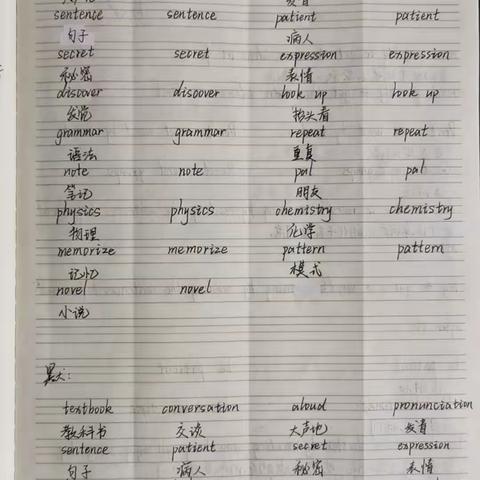 发音
sentence sentence patient patient
句子 病人
secret secret expression expression
秘密 表情
discover discover look up look up
发觉 抬头看
grammar grammar repeat repeat
语法 重复
note note pal pal
笔记 朋友
physics physics chemistry chemistry
物理 化学
memorize memorize pattern pattern
记忆 模式
novel novel
小说
默:
textbook conversation aloud pronunciation
教科书 交谈 大声地 发音
sentence patient secret expression
句子 病人 秘密 表情